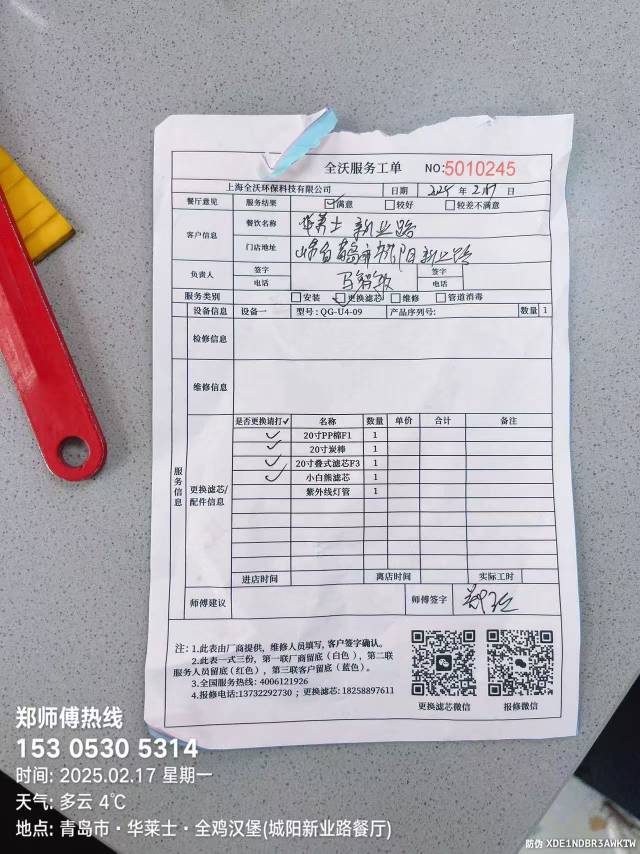 全沃服务工单 NO:5010245
上海全沃环保科技有限公司 日期 年 日
餐厅意见 服务结果 满意 较好 较差不满意
客户信息 餐饮名称 华莱士 新业路
门店地址 山东省青岛市城阳新业路
负责人 签字 签字
电话 电话
服务类别 安装 更换滤芯 维修 管道消毒
设备信息 设备一 型号:QG-U4-09 产品序列号: 数量 1
检修信息
维修信息
服务信息
更换滤芯/配件信息
是否更换请打✓ 名称 数量 单价 合计 备注
✓ 20寸PP棉F1 1
✓ 20寸炭棒 1
✓ 20寸叠式滤芯F3 1
✓ 小白熊滤芯 1
紫外线灯管 1
进店时间 离店时间 实际工时
师傅建议 师傅签字
注: 1.此表由厂商提供, 维修人员填写, 客户签字确认。
2.此表一式三份, 第一联厂商留底(白色), 第二联
服务人员留底(红色), 第三联客户留底(蓝色)。
3.全国服务热线: 4006121926
4.报修电话:13732292730 ; 更换滤芯: 18258897611
更换滤芯微信 报修微信
郑师傅热线
153 0530 5314
时间: 2025.02.17 星期一
天气: 多云 4℃
地点: 青岛市·华莱士·全鸡汉堡(城阳新业路餐厅)
防伪 XDE1NDBR3AWKTW